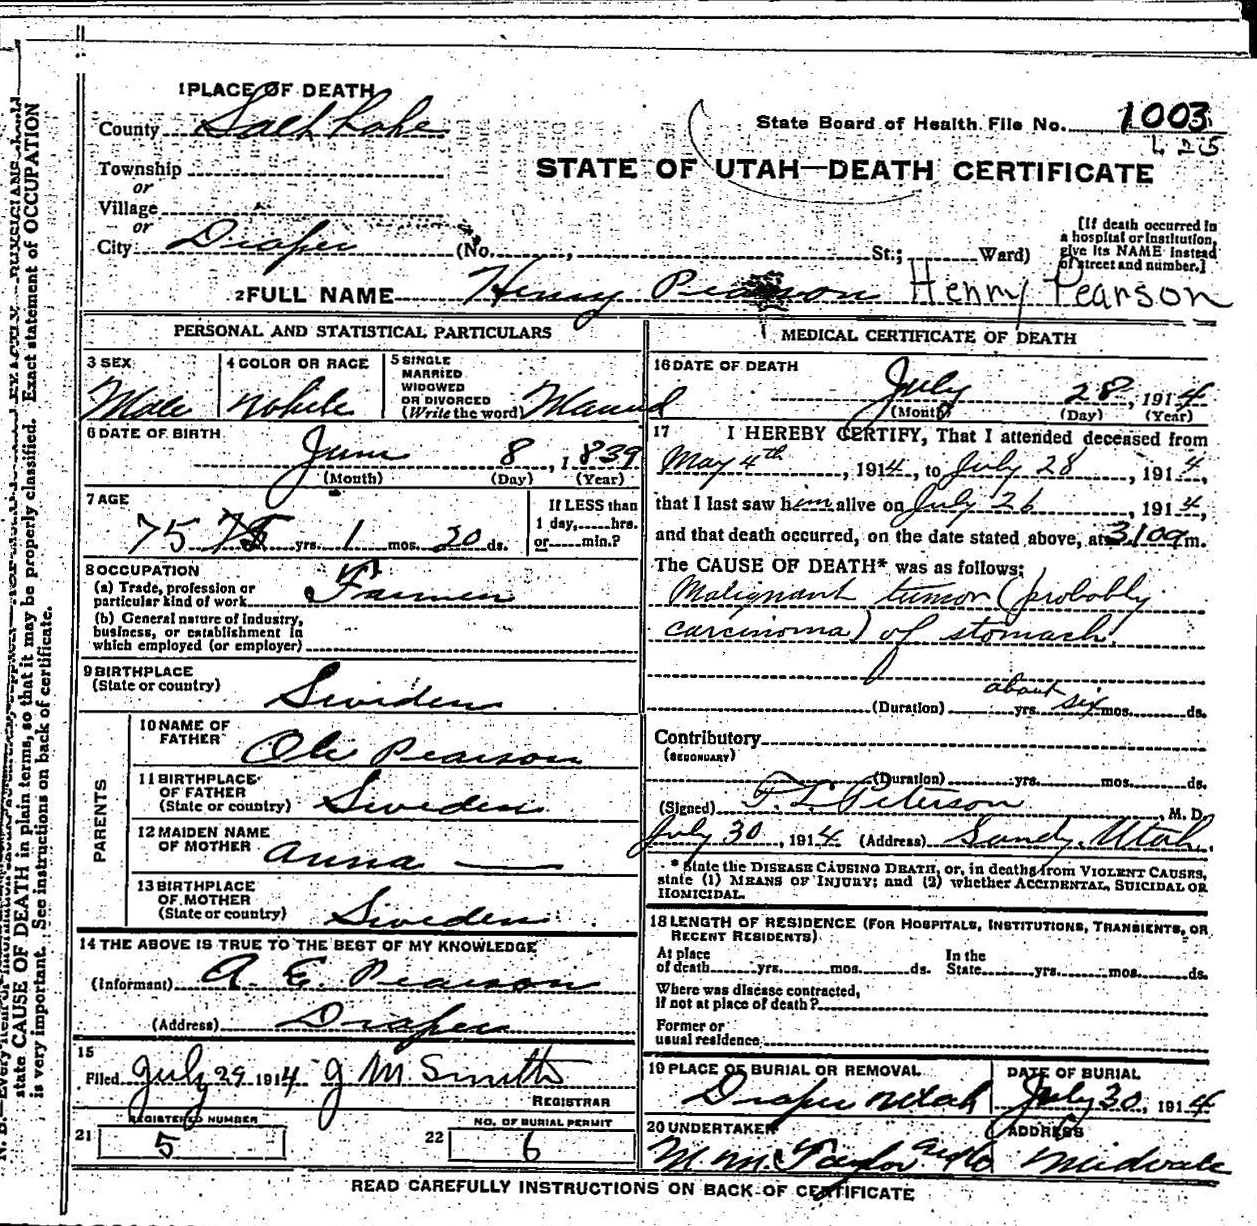 1 PLACE OF DEATH
County Salt Lake
State Board of Health File No. 1003
425
Township
or
Village
or
City Draper (No. , St.; Ward)
STATE OF UTAH—DEATH CERTIFICATE
[If death occurred in
a hospital or institution,
give its NAME instead
of street and number.]
2 FULL NAME Henry Pearson Henry Pearson
PERSONAL AND STATISTICAL PARTICULARS
3 SEX
Male
4 COLOR OR RACE
White
5 SINGLE
MARRIED
WIDOWED
OR DIVORCED
(Write the word) Married
6 DATE OF BIRTH
June 8, 1839
(Month) (Day) (Year)
7 AGE
75 75 yrs. 1 mos. 20 ds.
If LESS than
1 day, hrs.
or min.?
8 OCCUPATION
(a) Trade, profession or
particular kind of work Farmer
(b) General nature of industry,
business, or establishment in
which employed (or employer)
9 BIRTHPLACE
(State or country) Sweden
PARENTS
10 NAME OF
FATHER Ole Pearson
11 BIRTHPLACE
OF FATHER
(State or country) Sweden
12 MAIDEN NAME
OF MOTHER Anna —
13 BIRTHPLACE
OF MOTHER
(State or country) Sweden
14 THE ABOVE IS TRUE TO THE BEST OF MY KNOWLEDGE
(Informant) A. E. Pearson
(Address) Draper
15
Filed July 29 1914 J M Smith
REGISTRAR
REGISTERED NUMBER
21 5
NO. OF BURIAL PERMIT
22 6
MEDICAL CERTIFICATE OF DEATH
16 DATE OF DEATH
July 28, 1914
(Month) (Day) (Year)
17 I HEREBY CERTIFY, That I attended deceased from
May 4th, 1914, to July 28, 1914,
that I last saw him alive on July 26, 1914,
and that death occurred, on the date stated above, at 310a m.
The CAUSE OF DEATH* was as follows:
Malignant tumor (probably
carcinoma) of stomach.
about
(Duration) yrs. six mos. ds.
Contributory
(SECONDARY)
(Duration) yrs. mos. ds.
(Signed) F. L. Peterson M. D.
July 30, 1914 (Address) Sandy, Utah.
* State the DISEASE CAUSING DEATH, or, in deaths from VIOLENT CAUSES,
state (1) MEANS OF INJURY; and (2) whether ACCIDENTAL, SUICIDAL OR
HOMICIDAL.
18 LENGTH OF RESIDENCE (FOR HOSPITALS, INSTITUTIONS, TRANSIENTS, OR
RECENT RESIDENTS)
At place
of death yrs. mos. ds.
In the
State yrs. mos. ds.
Where was disease contracted,
if not at place of death?
Former or
usual residence
19 PLACE OF BURIAL OR REMOVAL
Draper Utah
DATE OF BURIAL
July 30, 1914
20 UNDERTAKER
M. M. Taylor
ADDRESS
Midvale
READ CAREFULLY INSTRUCTIONS ON BACK OF CERTIFICATE
state CAUSE OF DEATH in plain terms, so that it may be properly classified. Exact statement of OCCUPATION
is very important. See instructions on back of certificate.